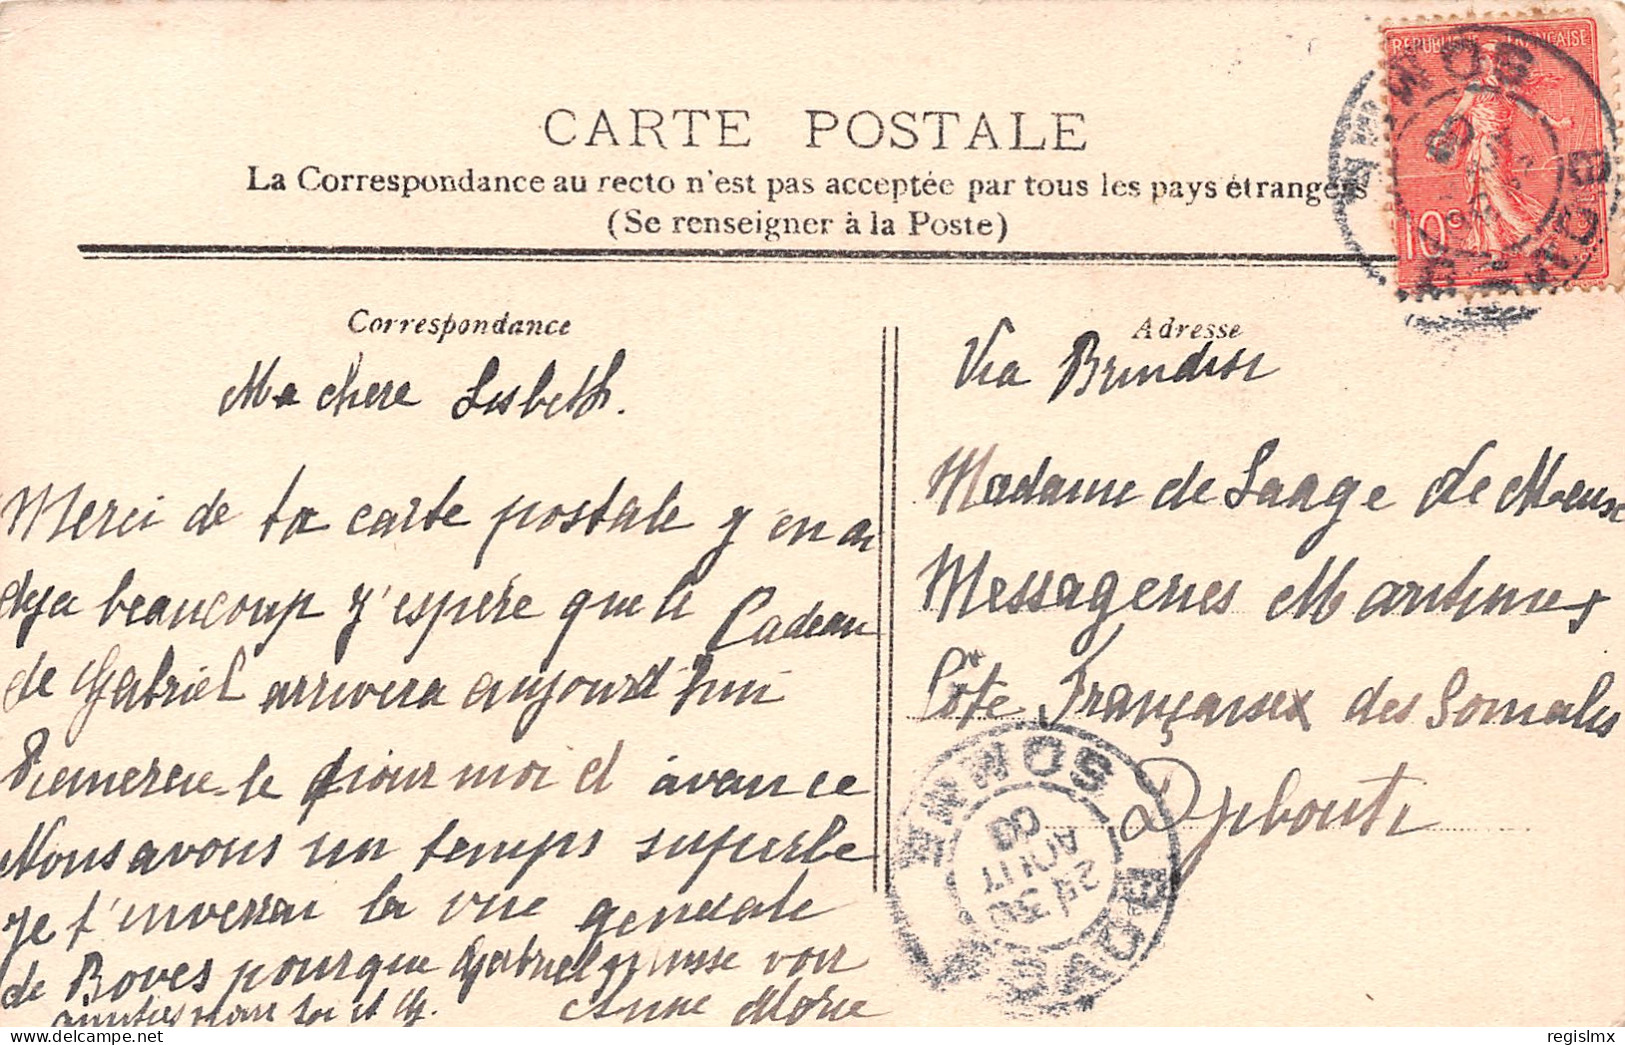 CARTE POSTALE
La Correspondance au recto n'est pas acceptée par tous les pays étrangers
(Se renseigner à la Poste)
REPUBLIQUE FRANÇAISE
10c
SOMME
Correspondance
Ma chere Lisbeth.
Merci de ta carte postale j'en ai
deja beaucoup j'espère que le Cadeau
de Gabriel arrivera aujourd'hui
Remercie-le pour moi d'avance
Nous avons un temps superbe
je t'enverrai la vue generale
de Boves pour que Gabriel puisse voir
amities pour toi et G. Anne Marie
Adresse
Via Brindisi
Madame de Saage de Meux
Messageries Maritimes
Côte Françaises des Somalis
Djibouti
SOMME
25 AOUT
regislmx